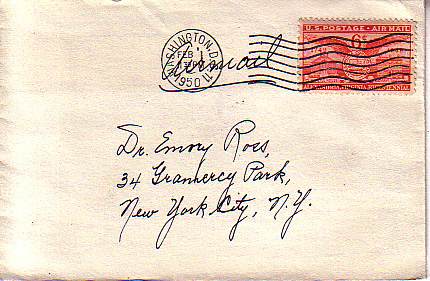 WASHINGTON, D.C.
FEB
1950
Airmail
U.S. POSTAGE - AIR MAIL
6¢
ALEXANDRIA, VIRGINIA, BICENTENNIAL
Dr. Emory Ross,
34 Gramercy Park,
New York City, N.Y.